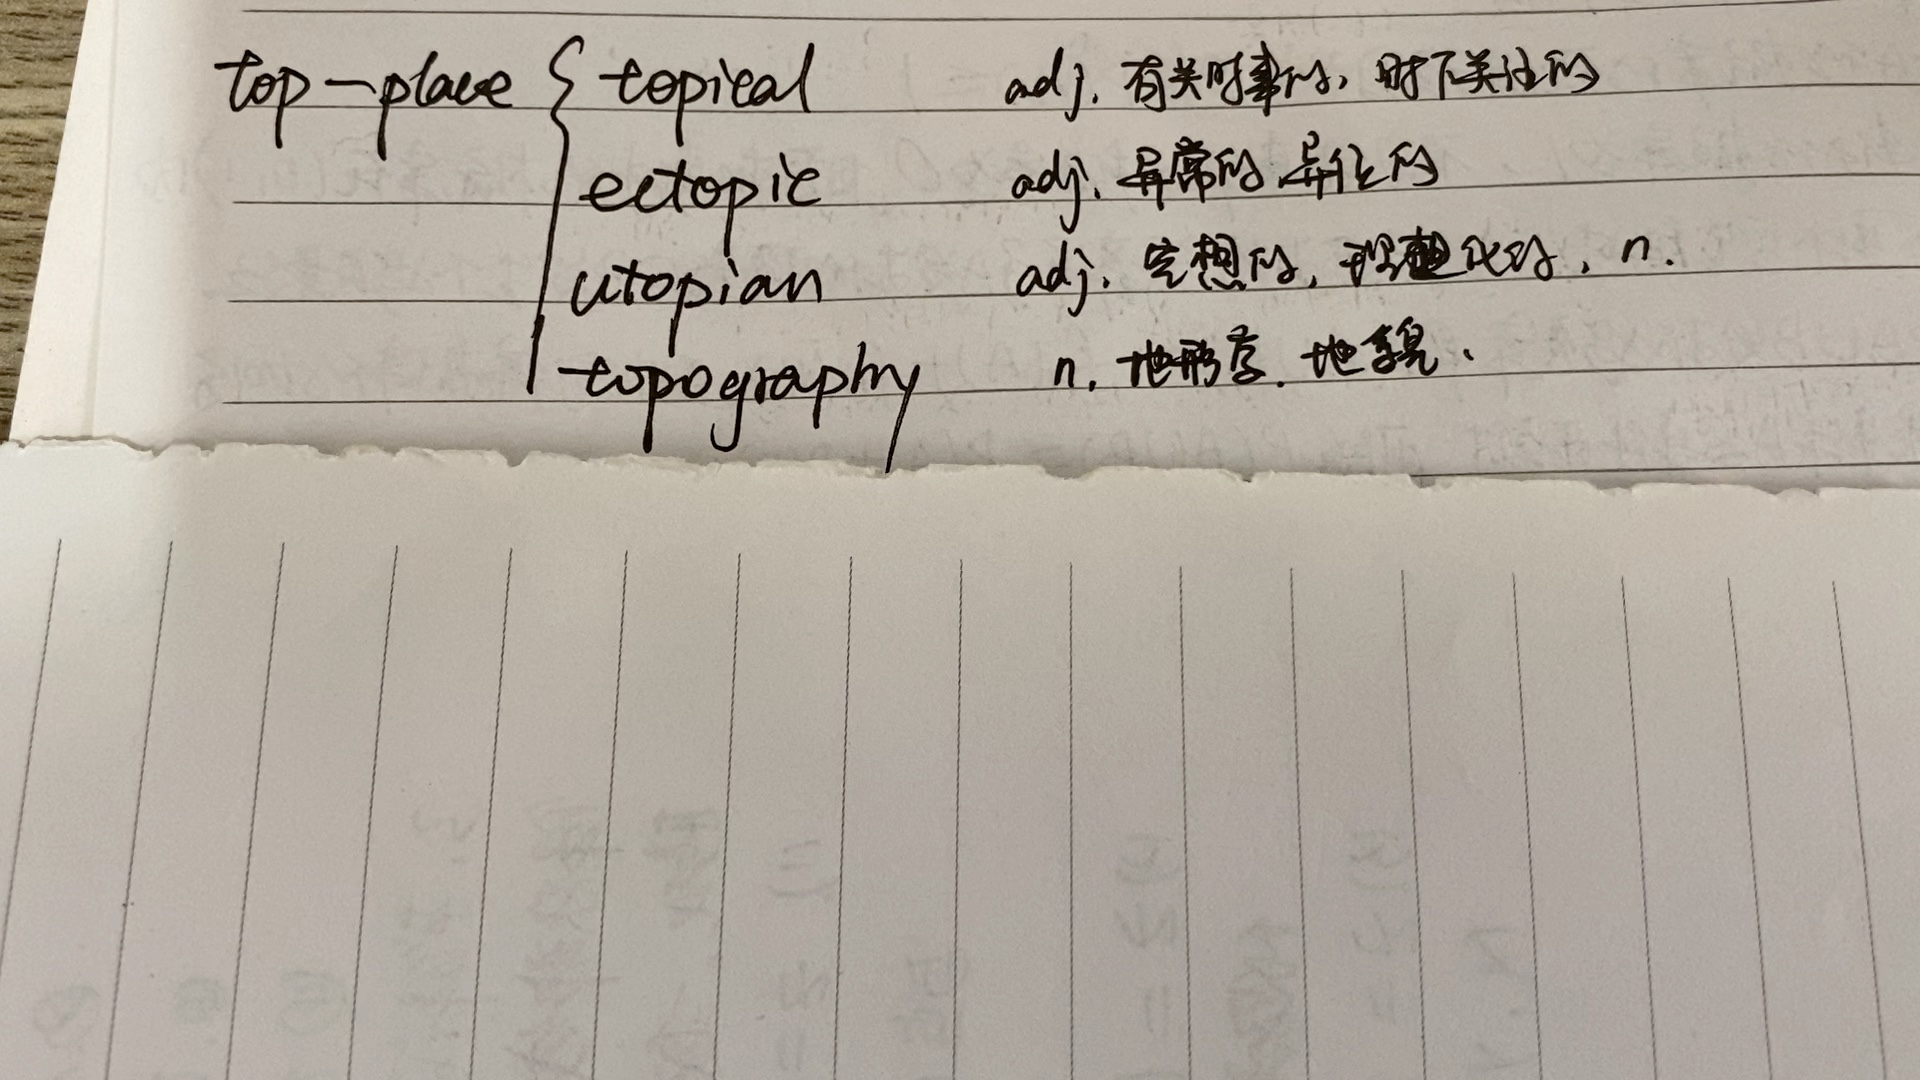 top-place { topical adj. 有关时事的, 时下关注的
ectopic adj. 异常的, 异位的
utopian adj. 空想的, 理想化的, n.
topography n. 地形学. 地貌.